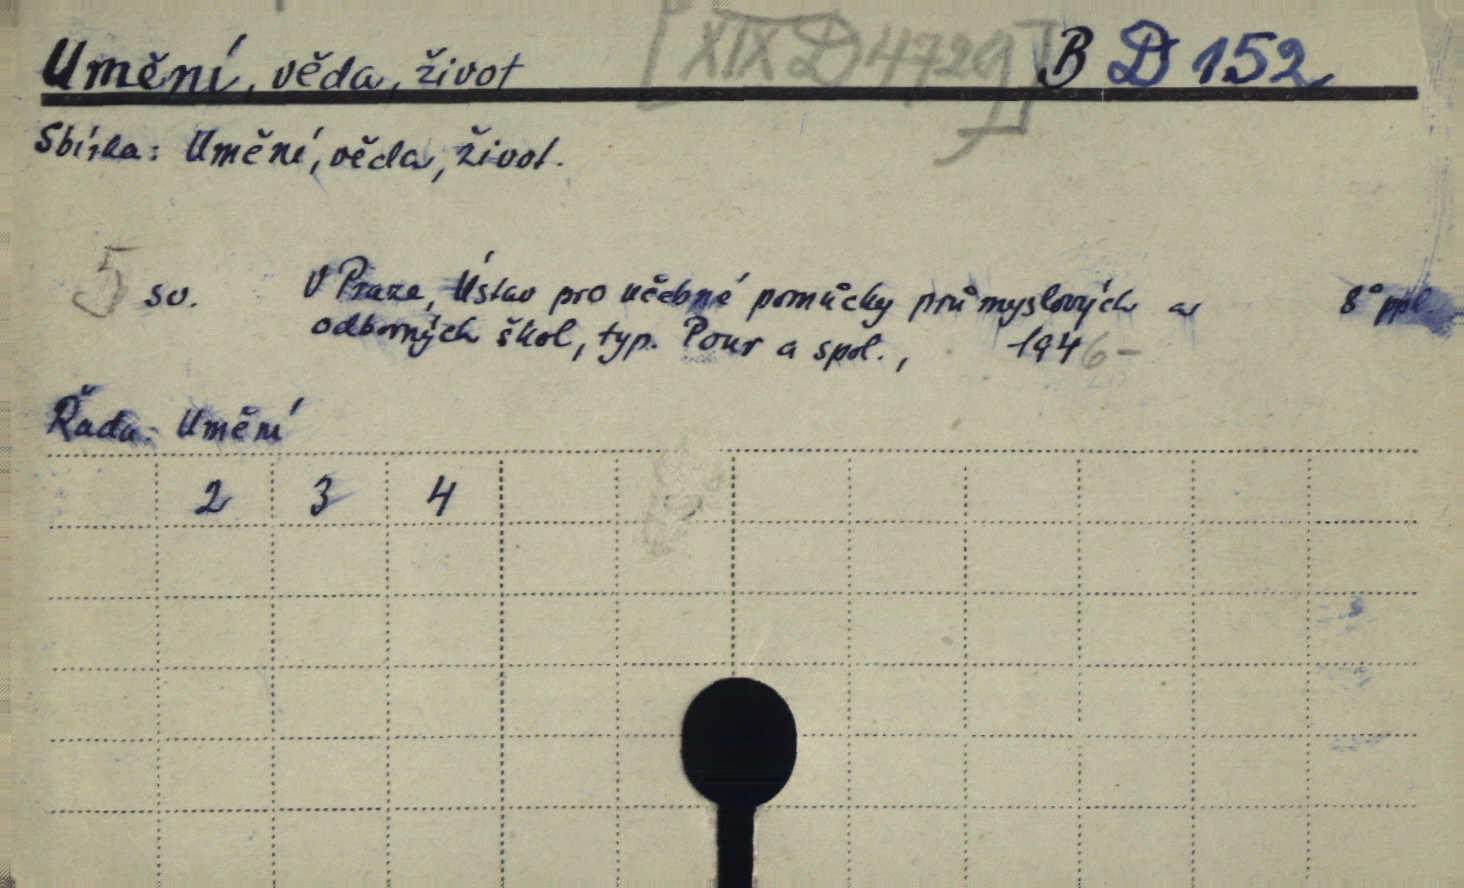 Umění, věda, život [XIX D 4729] B D 152
Sbírka: Umění, věda, život.
5 sv. V Praze, Ústav pro učebné pomůcky průmyslových a 8° ppl
odborných škol, typ. Pour a spol., 1946-
Řada: Umění
2 3 4